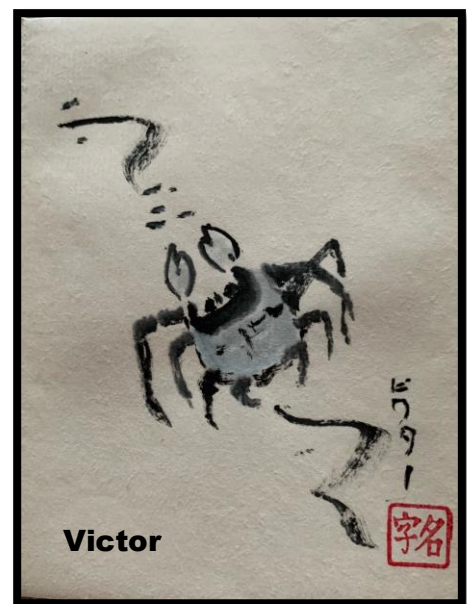 ビクター
名字
Victor